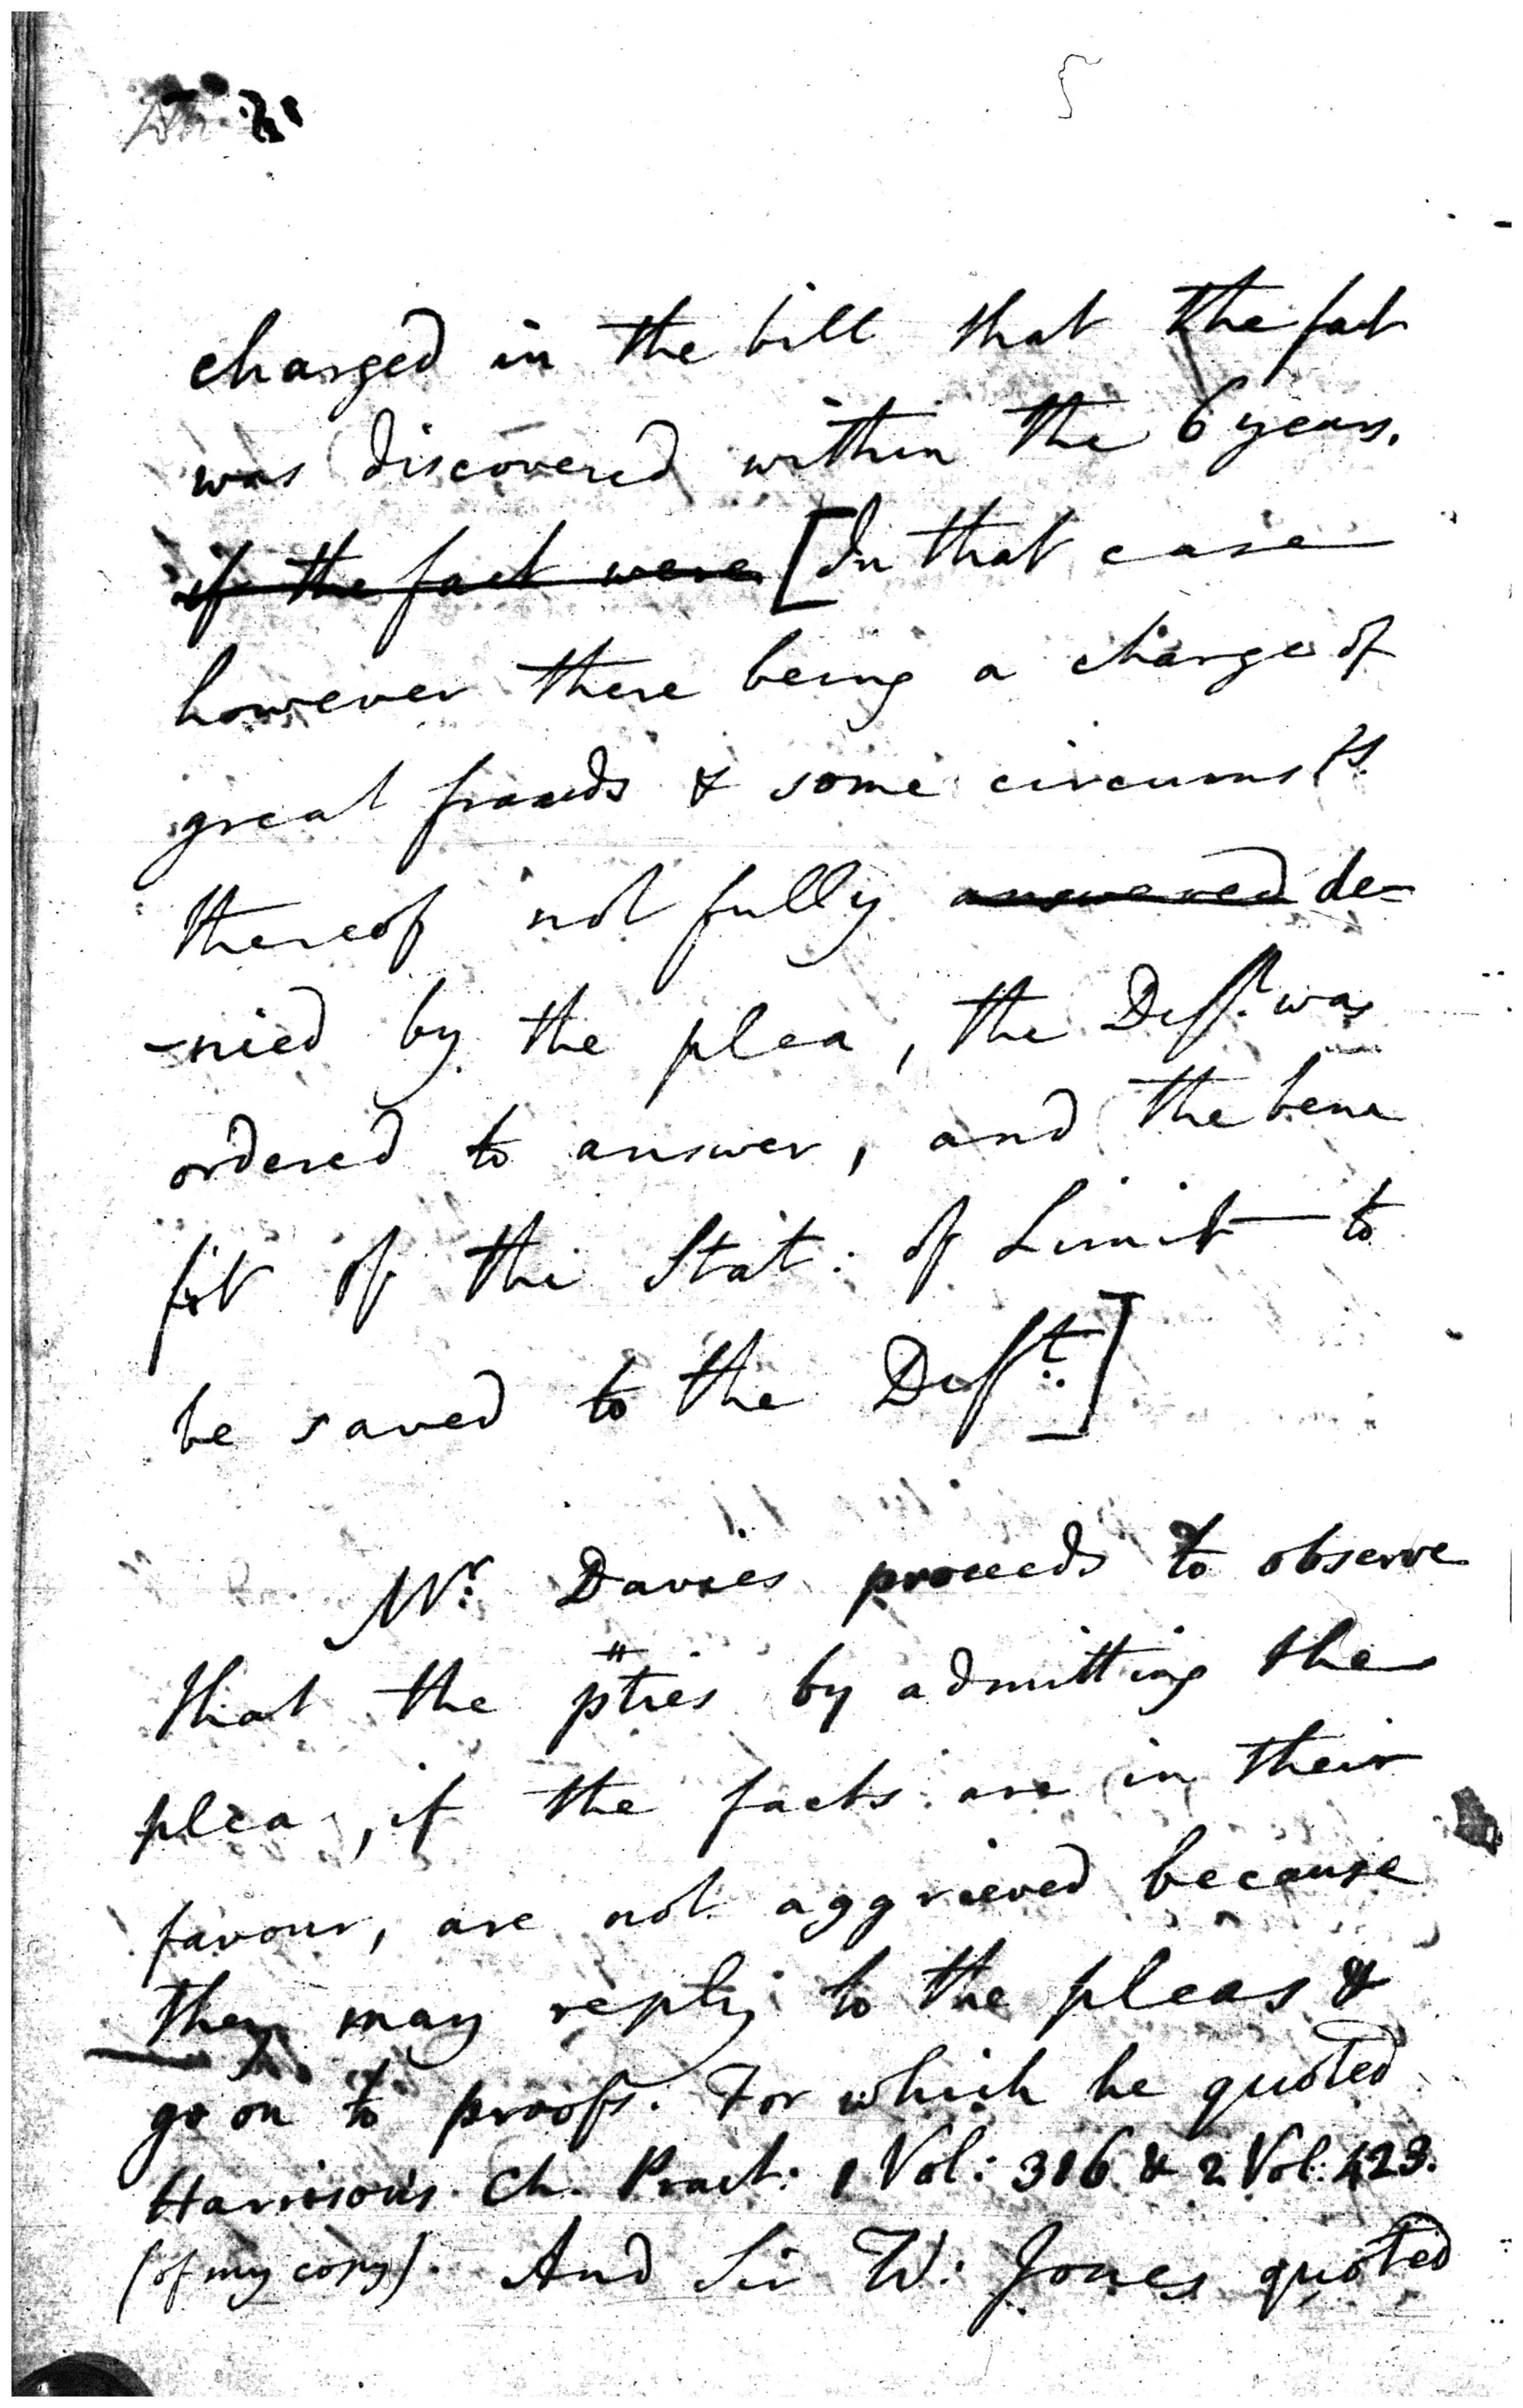 5
charged in the bill that the fact
was discovered within the 6 years.
if the fact were [In that case
however there being a charge of
great frauds & some circumsts.
thereof not fully answered de-
-nied by the plea, the Deft. was
ordered to answer, and the bene
fit of the Stat: of Limit to
be saved to the Deft.]
Mr. Davies proceeds to observe
that the pties by admitting the
plea, if the facts are in their
favour, are not aggrieved because
they may reply to the pleas &
go on to proofs. For which he quoted
Harrison's Ch. Pract: 1 Vol: 316 & 2 Vol: 423.
(of my copy). And Sir W: Jones quoted